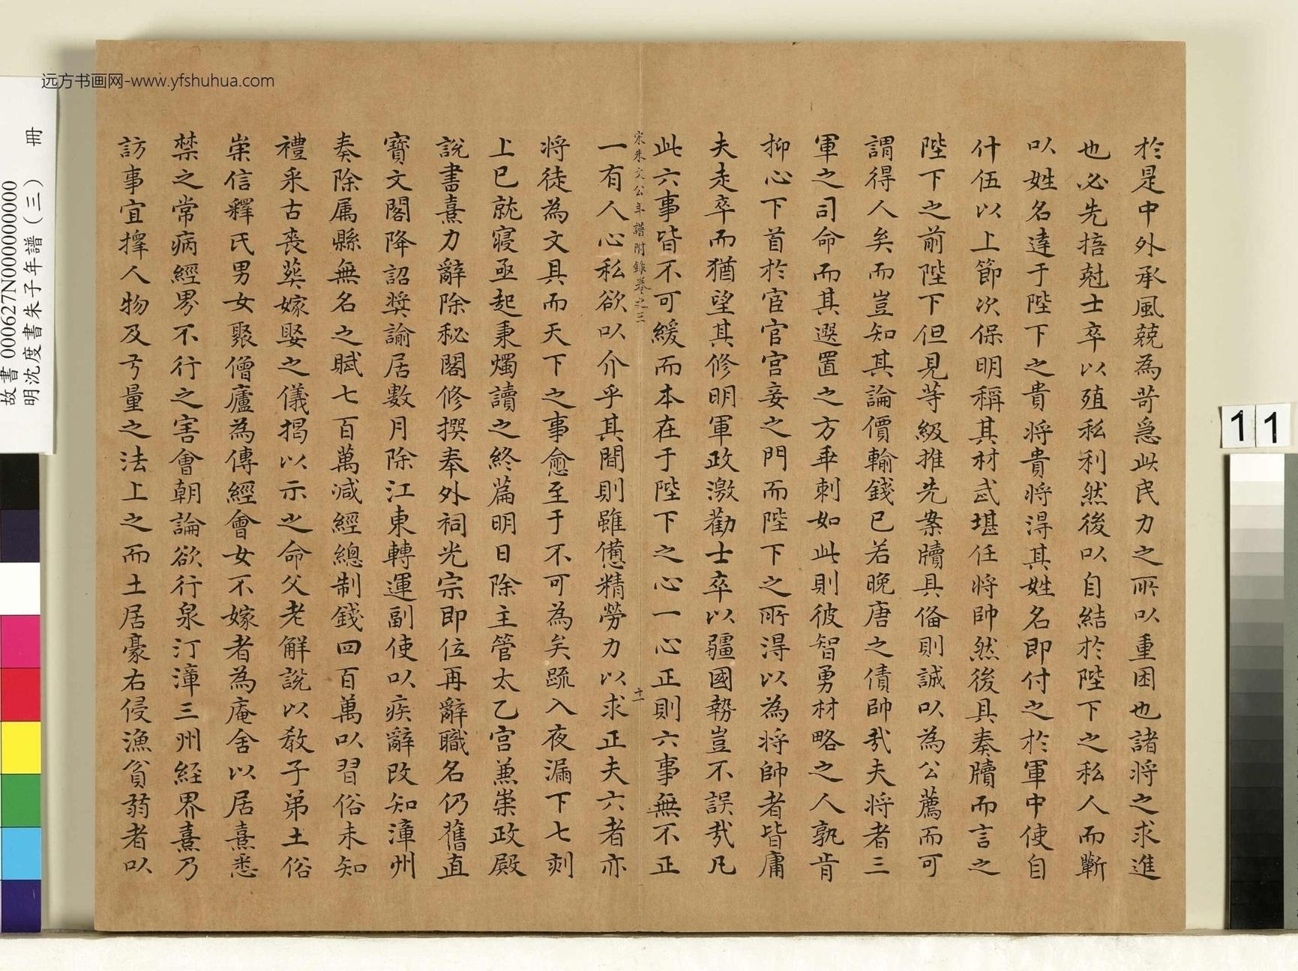 於是中外承風競為苛急此民力之所以重困也諸將之求進
也必先掊尅士卒以殖私利然後以自結於陛下之私人而蘄
以姓名達于陛下之貴將貴將得其姓名即付之於軍中使自
什伍以上節次保明稱其材武堪任將帥然後具奏牘而言之
陛下之前陛下但見等級推先案牘具備則誠以為公薦而可
謂得人矣而豈知其論價輸錢已若晚唐之債帥哉夫將者三
軍之司命而其選置之方乖剌如此則彼智勇材略之人孰肯
抑心下首於宦官宮妾之門而陛下之所得以為將帥者皆庸
夫走卒而猶望其修明軍政激勸士卒以疆國勢豈不誤哉凡
此六事皆不可緩而本在于陛下之心一心正則六事無不正
宋朱文公年譜附錄卷之三
十一
一有人心私欲以介乎其間則雖憊精勞力以求正夫六者亦
將徒為文具而天下之事愈至于不可為矣疏入夜漏下七刻
上已就寢亟起秉燭讀之終篇明日除主管太乙宮兼崇政殿
說書熹力辭除秘閣修撰奉外祠光宗即位再辭職名仍舊直
寶文閣降詔獎諭居數月除江東轉運副使以疾辭改知漳州
奏除属縣無名之賦七百萬減經總制錢四百萬以習俗未知
禮采古喪葬嫁娶之儀揭以示之命父老解說以教子弟土俗
崇信釋氏男女聚僧廬為傳經會女不嫁者為庵舍以居熹悉
禁之常病經界不行之害會朝論欲行泉汀漳三州經界熹乃
訪事宜擇人物及弓量之法上之而土居豪右侵漁貧弱者以
远方书画网-www.yfshuhua.com
故書000627N000000000
明沈度書朱子年譜(三) 冊
11